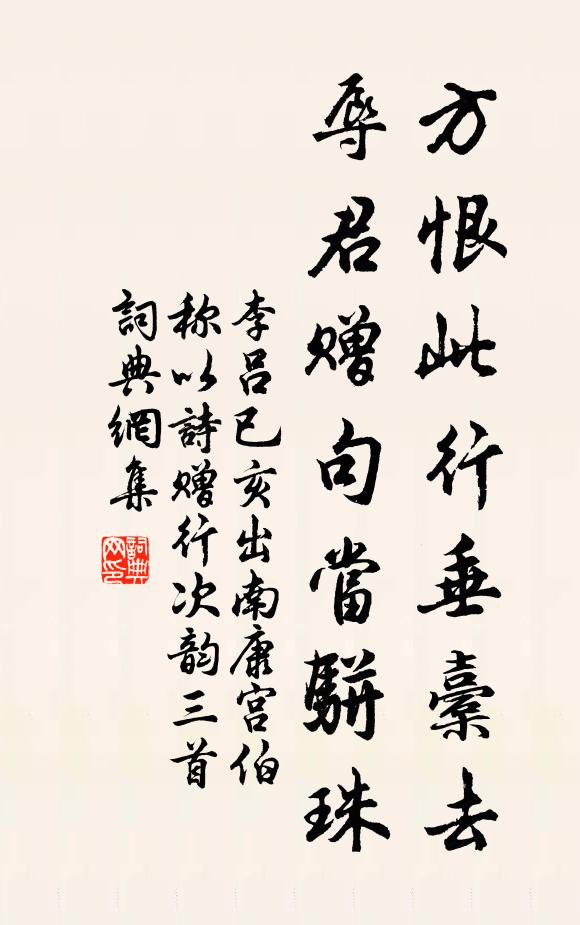 方恨此行垂橐去
辱君赠句當駢珠
李吕已亥出南康宫伯
称以詩赠行次韵三首
詞典網集
詞典
网印